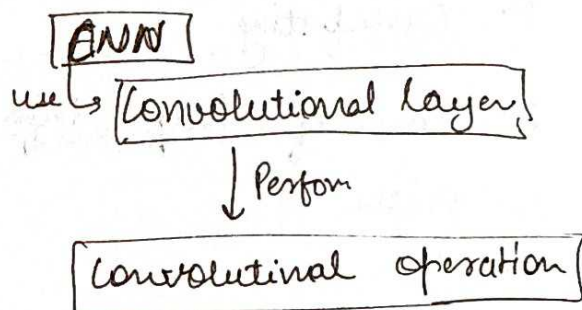 CNN
use
Convolutional layer
Perfom
Convolutinal operation